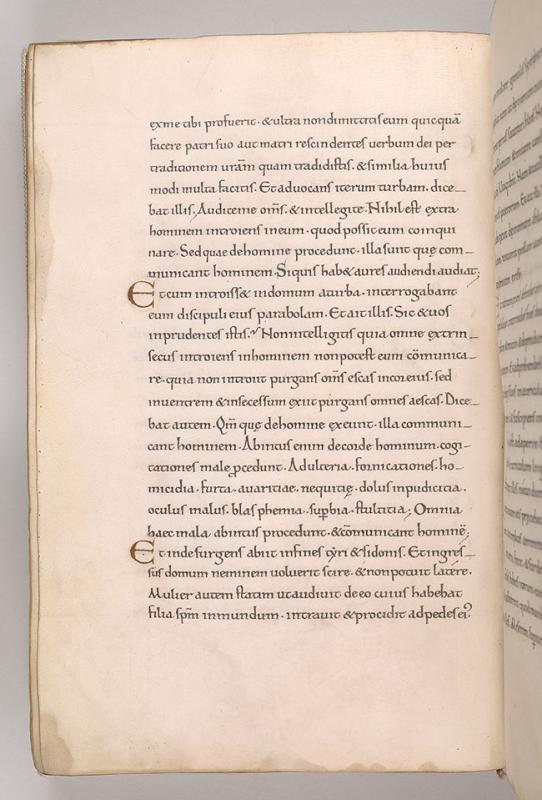 ex me tibi profuerit · & ultra non dimittitis eum quicquā
facere patri suo aut matri rescindentes verbum dei per
traditionem urām quam tradidistis · & similia huius
modi multa facitis · Et advocans iterum turbam · dice
bat illis · Audite me om̄s · & intellegite · Nihil est extra
hominem introiens in eum · quod possit eum coinqui
nare · Sed quae de homine procedunt · illa sunt quę com
municant hominem · Si quis hab& aures audiendi audiat ;
Et cum introiss& in domum a turba · interrogabant
eum discipuli eius parabolam · Et ait illis · Sic & uos
inprudentes istis · Non intelligitis quia omne extrin
secus introiens in hominem non potest eum cōmunica
re · quia non introit purgans om̄s escas in cor eius · sed
in ventrem & in secessum exiit purgans omnes aescas · Dice
bat autem · Qm̄ quę de homine exeunt · illa communi
cant hominem · Ab intus enim de corde hominum · cogi
tationes male p̄cedunt · Adulteria · fornicationes · ho
micidia · furta · avaritiae · nequitię · dolus inpudicitia ·
oculus malus · blasphemia · sup̄bia · stultitia ; Omnia
haec mala · ab intus procedunt · & cōmunicant hominē ;
Et inde surgens abiit in fines tyri & sidonis · Et ingres
sus domum neminem voluerit scire · & non potuit latere ·
Mulier autem statim ut audiuit de eo cuius habebat
filia sp̄m inmundum · intravit & procidit ad pedes ei'